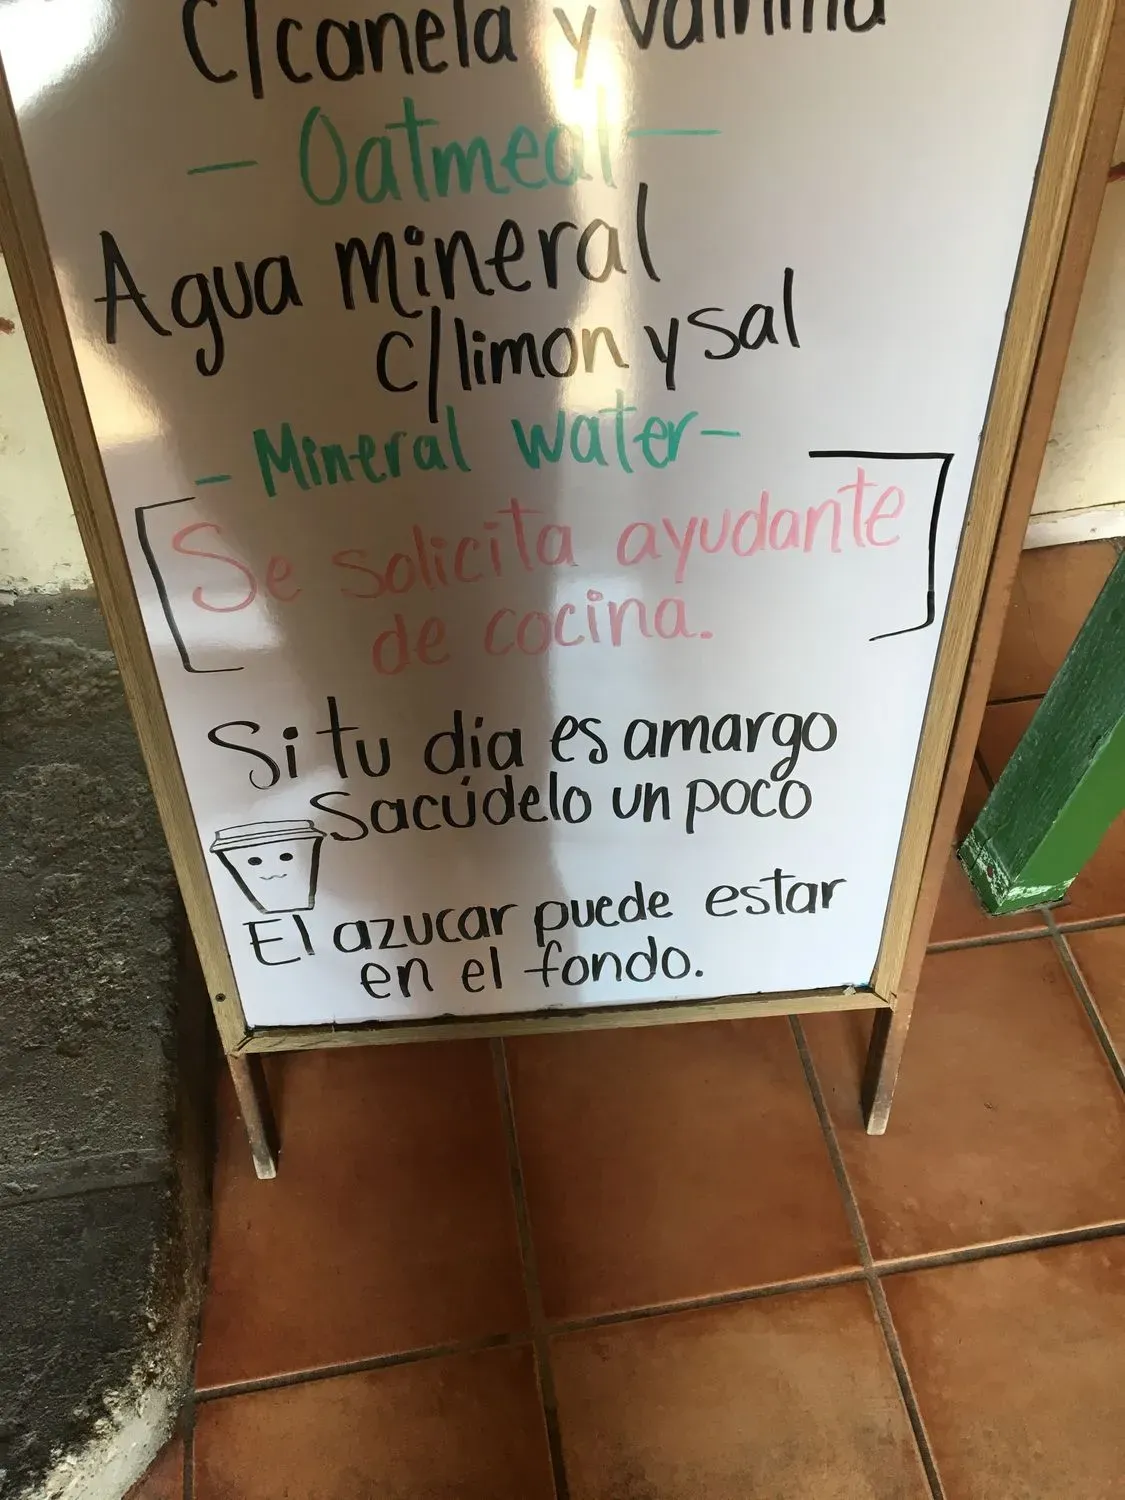 C/canela y vainilla
- Oatmeal -
Agua mineral
c/limon y sal
- Mineral water -
Se solicita ayudante
de cocina.
Si tu día es amargo
Sacúdelo un poco
El azucar puede estar
en el fondo.